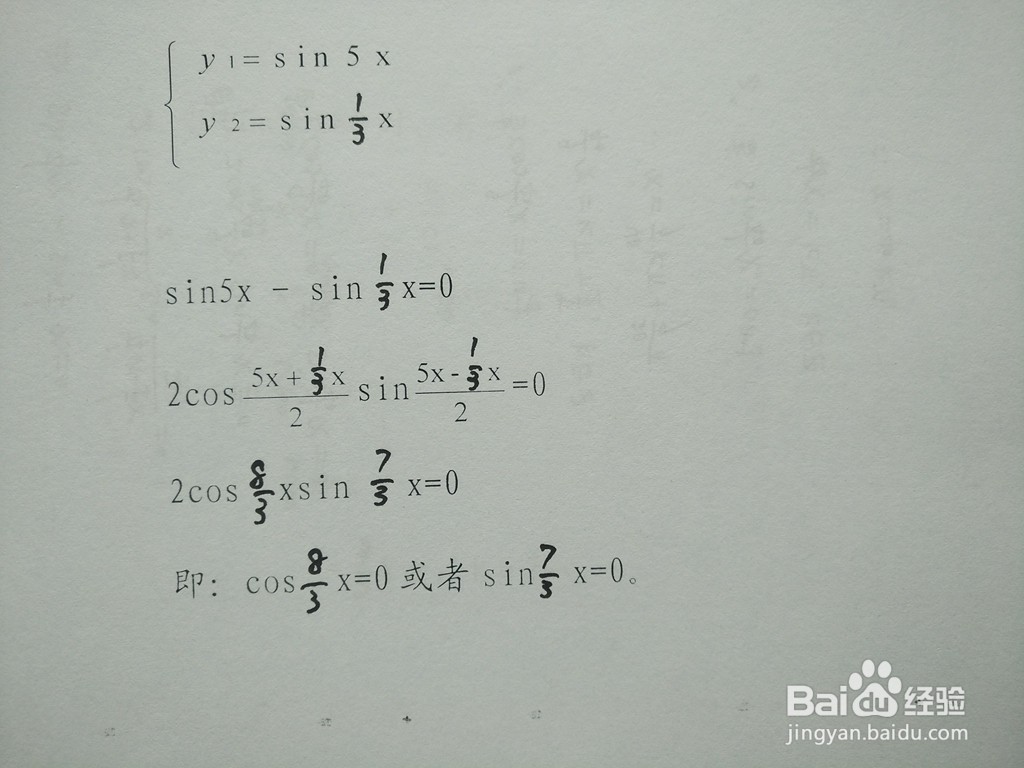 y 1= sin 5 x
y 2= sin 1/3 x
sin5x - sin 1/3 x=0
2cos (5x+1/3x)/2 sin (5x-1/3x)/2 =0
2cos 8/3 xsin 7/3 x=0
即: cos 8/3 x=0 或者 sin 7/3 x=0。
Bai du 经验
jingyan.baidu.com